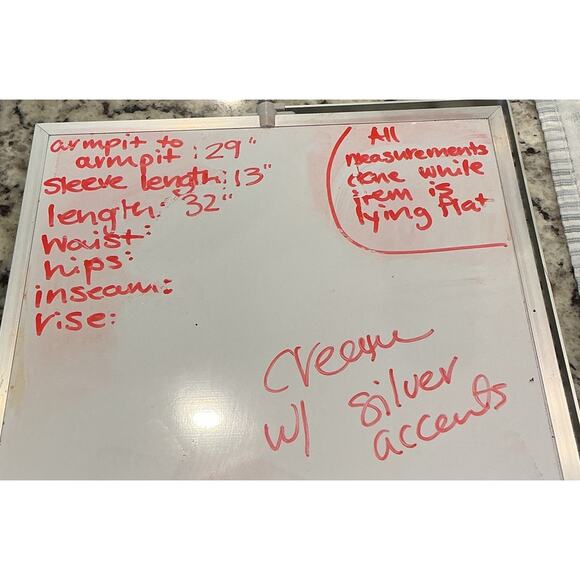 armpit to
armpit : 29"
sleeve length: 13"
length: 32"
waist:
hips:
inseam:
rise:
All
measurements
done while
item is
lying flat
creme
w/ silver
accents